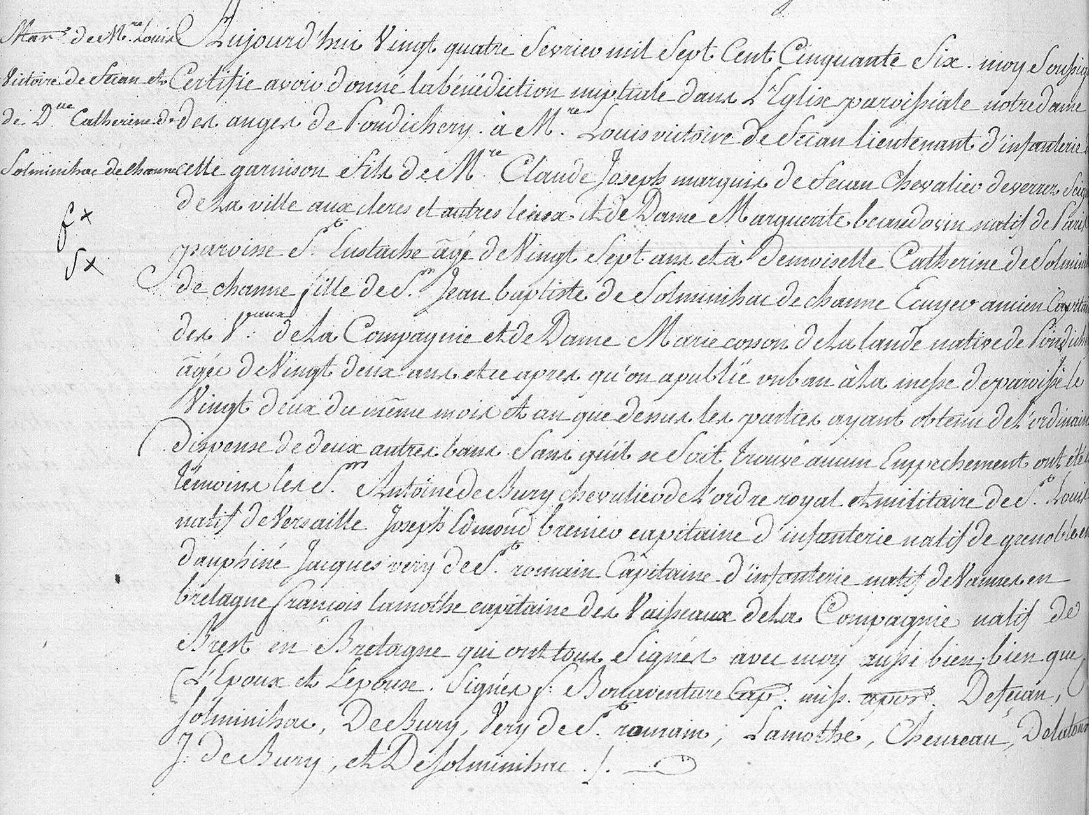 Mar.e de M.re Louis
Victoire de Fécan et
de D.lle Catherine de
Solminihac de channe
Aujourd'hui Vingt quatre fevrier mil Sept Cent Cinquante Six. moy Soussig
Certifie avoir donné la bénédiction nuptiale dans L'Eglise paroissiale notre dame
des anges de Pondichery. à M.re Louis victoire de Fécan lieutenant d'infanterie
cette garnison fils de M.re Claude Joseph marquis de Fecan Chevalier
de la ville aux cleres et autres lieux et de Dame Marguerite beaudouin natif de Paris
paroisse S.t Eustache âgé de Vingt Sept ans et à Demoiselle Catherine de Solmini
de channe fille de S.r Jean baptiste de Solminihac de channe Ecuyer ancien Capitai
des V.aux de la Compagnie et de Dame Marie cosson de la lande native de Pondich
âgée de Vingt deux ans et ce apres qu'on a publié un ban à la messe de paroisse le
Vingt deux du même mois et an que dessus les parties ayant obtenu de l'ordinaire
dispense de deux autres bans Sans qu'il se Soit trouvé aucun Empechement ont été
témoins les S.rs Antoine de Bury chevalier de L'ordre royal et militaire de S.t Louis
natif de Versaille Joseph Edmond brenier capitaine d'infanterie natif de grenoble en
dauphiné Jacques very de S.t romain Capitaine d'infanterie natif de Vannes en
bretagne françois lamothe capitaine des Vaisseaux de la Compagnie natif de
Brest en Bretagne qui ont tous Signés avec moy aussi bien, bien que
L'Epoux et L'epouse. Signés f. Bonaventure Cap. miss. apost. Defécan,
Solminihac, De Bury, Very de S.t romain, Lamothe, Chevreau,
J. de Bury, et D Solminihac ./.